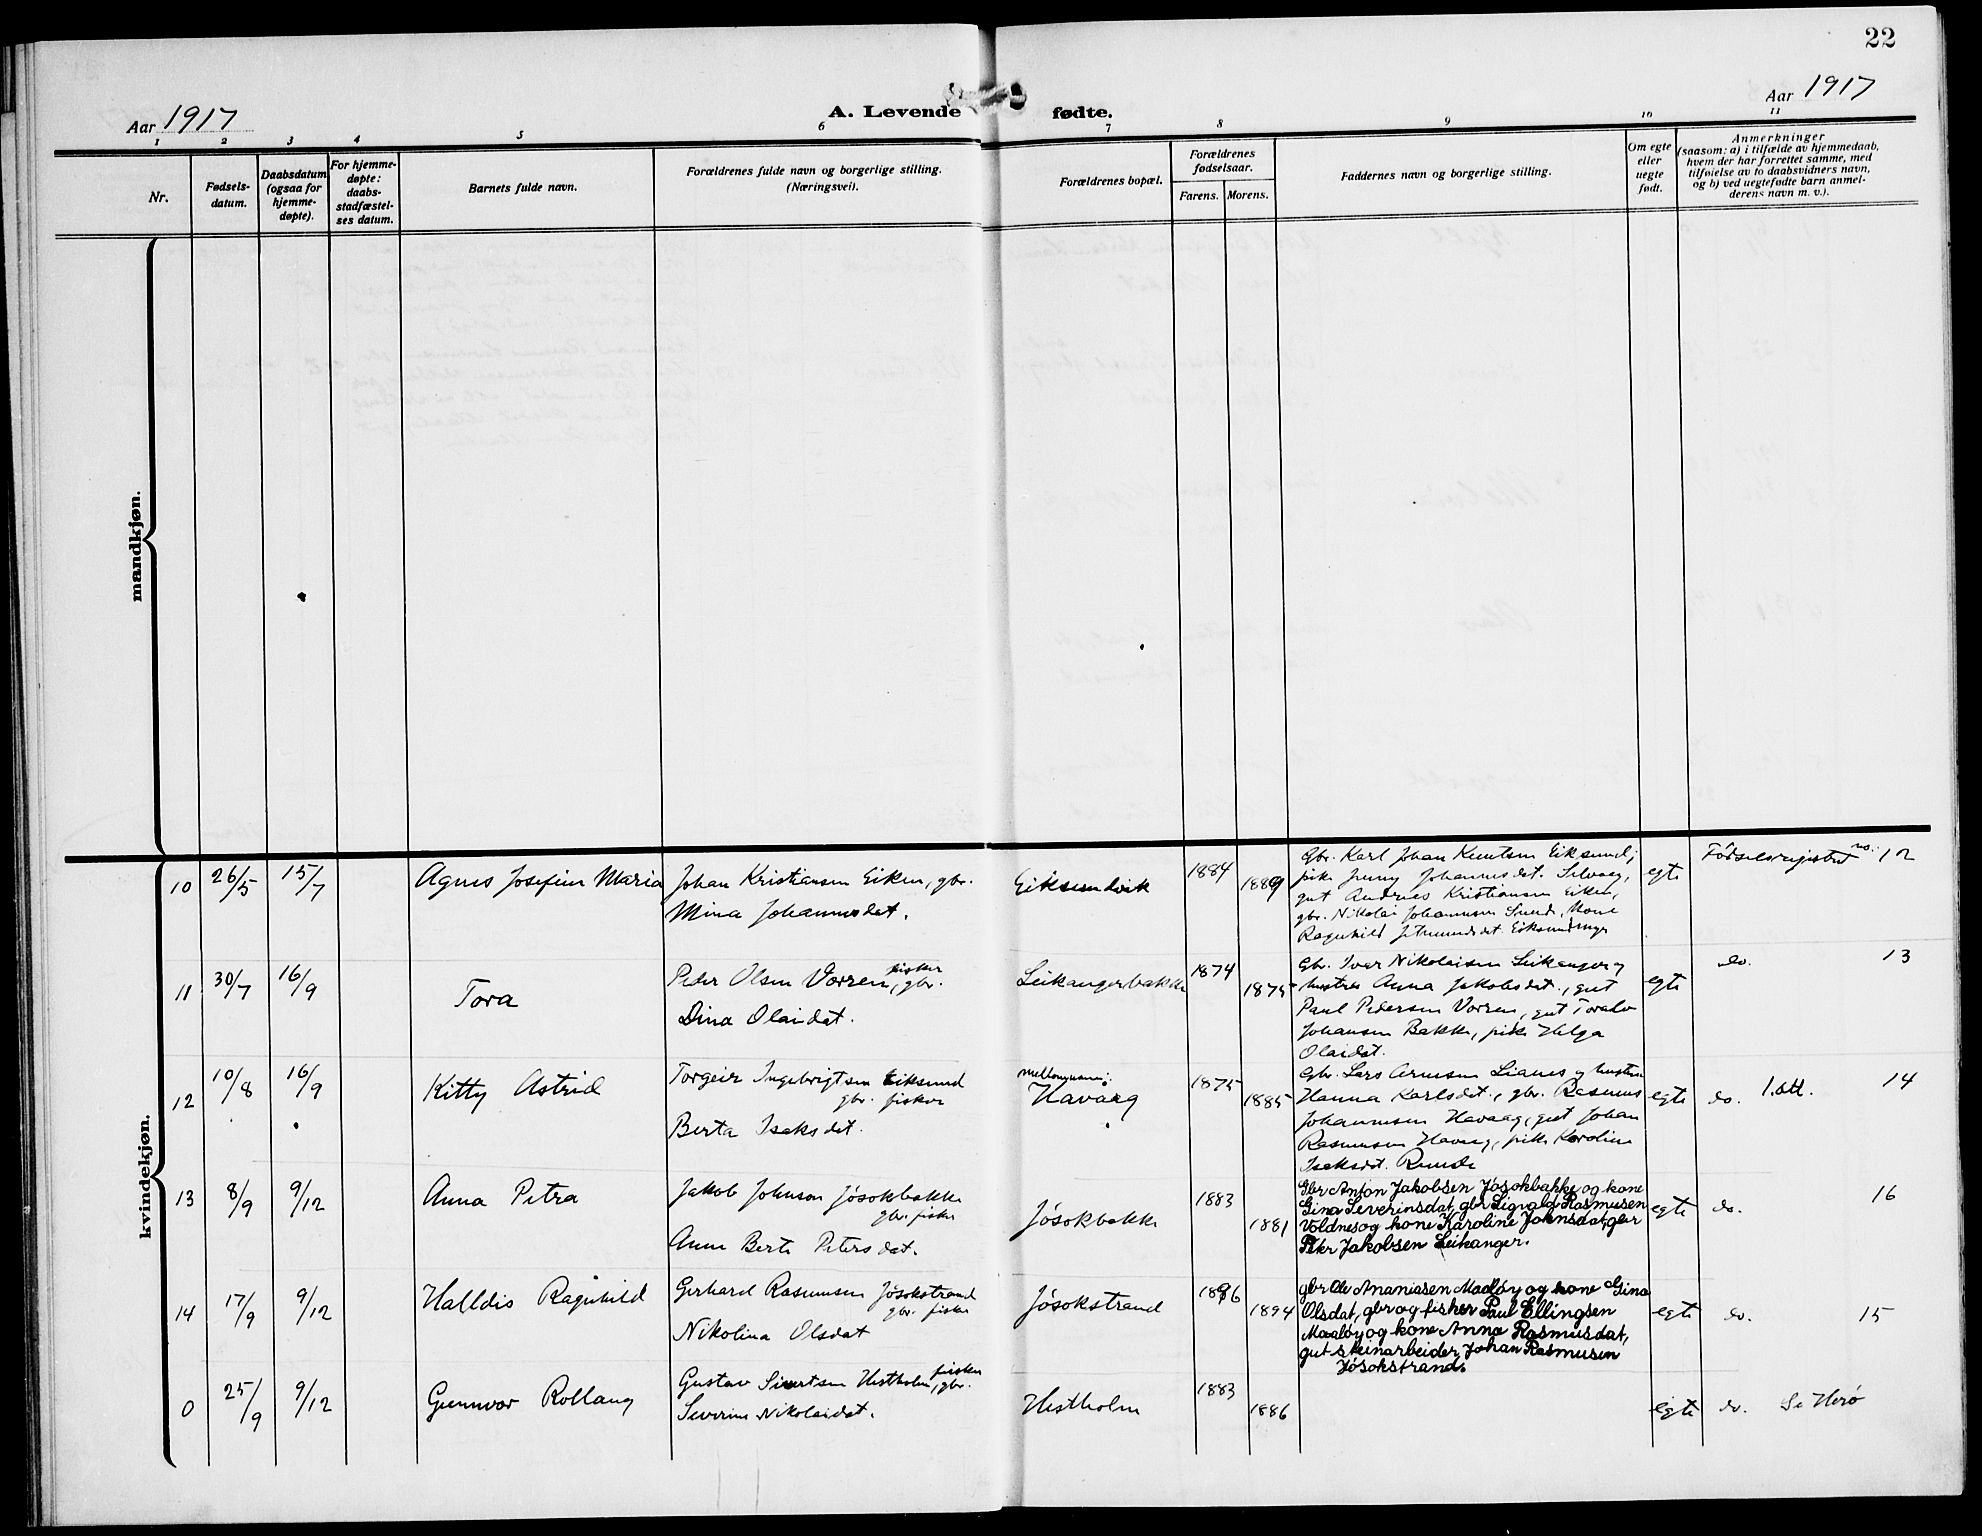 22
Aar 1917
A. Levende fødte.
Aar 1917
1 2 3 4 5 6 7 8 9 10 11
Nr.
Fødsels-
datum.
Daabsdatum
(ogsaa for
hjemme-
døpte).
For hjemme-
døpte:
daabs-
stadfæstel-
ses datum.
Barnets fulde navn.
Forældrenes fulde navn og borgerlige stilling.
(Næringsvei).
Forældrenes bopæl.
Forældrenes
fødselsaar.
Farens. Morens.
Faddernes navn og borgerlige stilling.
Om egte
eller
uegte
født.
Anmerkninger
(saasom: a) i tilfælde av hjemmedaab,
hvem der har forrettet samme, med
tilføielse av to daabsvidners navn,
og b) ved uegtefødte barn anmel-
derens navn m. v.).
mandkjøn.
kvindekjøn.
10 26/5 15/7
Agnes Josefine Maria
Johan Kristiansen Eiken, gbr.
Mina Johannesdat.
Eiksundvik
1884
1889
Gbr. Karl Johan Knutsen Eiksund,
pike Jenny Johannesdat. Selvaag,
gut Andreas Kristiansen Eiken,
gbr. Nikolai Johannesen Sund, kone
Ragnhild
egte
Fødselsregistret no. 12
11 30/7 16/9
Tora
Peder Olsen Vorren, fisker, gbr.
Dina Olaidat.
Leikangerbakke
1874
1875
Gbr. Iver Nikolaisen Leikanger og
hustru Anna Jakobsdat., gut
Paul Pedersen Vorren, gut Toralv
Johansen Bakke, pike Helga
Olaidat.
egte
do. 13
12 10/8 16/9
Kitty Astrid
Torgeir Ingebrigtsen Eiksund
gbr. fisker
Berta Isaksdat.
Havaag
1875
1885
Gbr. Lars Arnesen Lianes og hustru
Hanna Karlsdat., gbr. Rasmus
Johannesen Havaag, gut Johan
Rasmussen Havaag, pike Karoline
Isaksdat. Runde
egte
do. 1.att. 14
13 8/9 9/12
Anna Petra
Jakob Johnson Jøsokbakke
gbr. fisker
Anne Berte Petersdat.
Jøsokbakke
1883
1881
Gbr Anton Jakobsen Jøsokbakke og kone
Gina Severinsdat, gbr Sigvald Rasmusen
Voldnes og kone Karoline Johnsdat, gbr
Petr Jakobsen Leikanger.
egte
do. 16
14 17/9 9/12
Halldis Ragnhild
Gerhard Rasmusen Jøsokstrand
gbr. fisker
Nikolina Olsdat
Jøsokstrand
1896
1894
gbr Olv Ananiasen Maaløy og kone Gina
Olsdat, gbr og fisker Paul Ellingsen
Maaløy og kone Anna Rasmusdat,
gut steinarbeider Johan Rasmusen
Jøsokstrand.
egte
do. 15
0 25/9 9/12
Gunnvor Rollaug
Gustav Sivertsen Hestholm, fisker, gbr.
Severine Nikolaidat.
Hestholm
1883
1886
egte
do. Se Herø